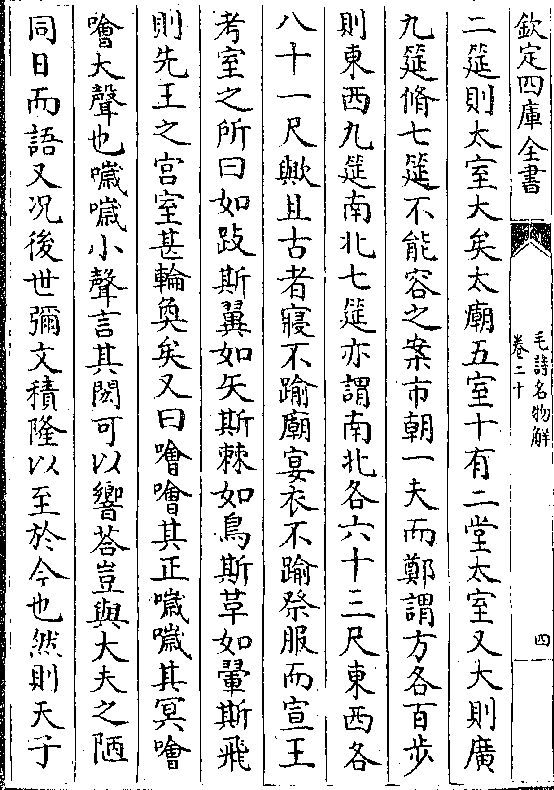 欽定四庫全書
毛詩名物解
卷二十
四
二筵則太室大矣太廟五室十有二堂太室又大則廣
九筵脩七筵不能容之案市朝一夫而鄭謂方各百步
則東西九筵南北七筵亦謂南北各六十三尺東西各
八十一尺歟且古者寢不踰廟宴衣不踰祭服而宣王
考室之所曰如跂斯翼如矢斯棘如鳥斯革如翬斯飛
則先王之宫室甚輪奐矣又曰噲噲其正噦噦其冥噲
噲大聲也噦噦小聲言其閎可以響荅豈與大夫之陋
同日而語又况後世彌文積隆以至於今也然則天子